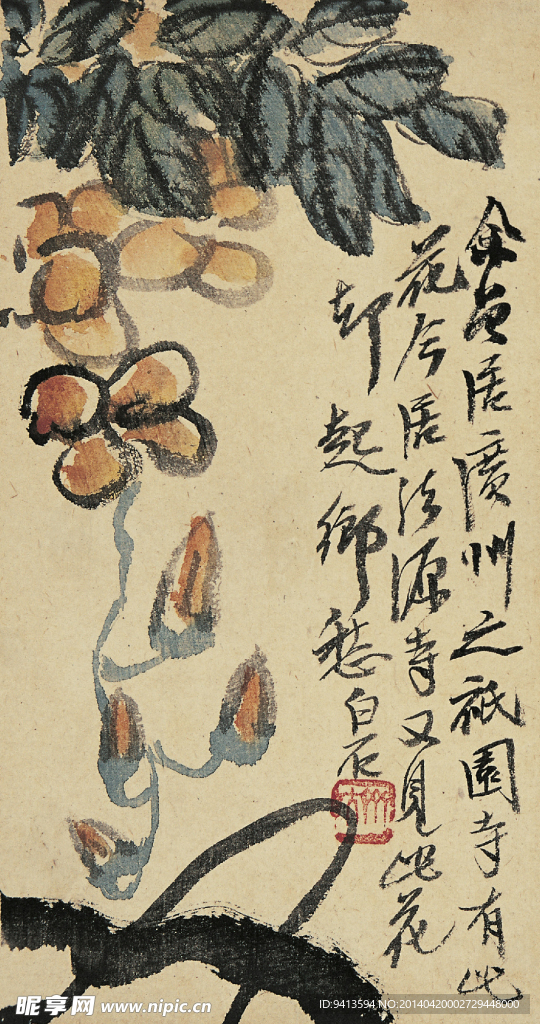 余曾居廣州之祇園寺有此
花今居法源寺又見此花
却起鄉愁白石
昵享网 www.nipic.cn
ID:9413594 NO:20140420002729448000